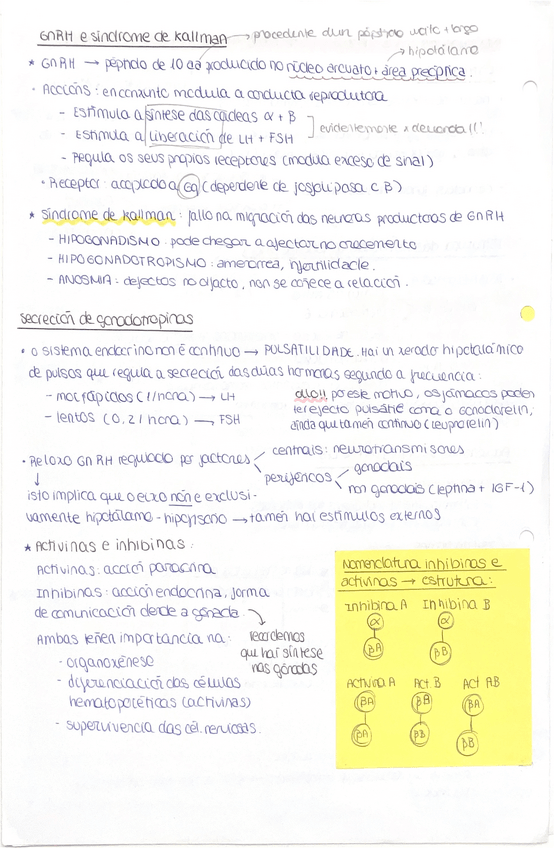 GnRH e síndrome de Kallman → procedente dun péptido moito + largo
→ hipotálamo
* GnRH → péptido de 10 aa producido no núcleo arcuato + área preóptica.
· Accións: en conxunto modula a conducta reprodutora
- Estimula a síntese das cadeas α + β
- Estimula a liberación de LH + FSH
evidentemente x demanda!!
- Regula os seus propios receptores (modula exceso de sinal)
· Receptor: acoplado a Gq (dependente de fosfolipasa C β)
* Síndrome de Kallman: fallo na migración das neuronas productoras de GnRH
- HIPOGONADISMO: pode chegar a afectar no crecemento
- HIPOGONADOTROPISMO: amenorrea, infertilidade.
- ANOSMIA: defectos no olfacto, non se coñece a relación.
Secreción de gonadotropinas
· o sistema endocrino non é continuo → PULSATILIDADE. Hai un xerador hipotalámico
de pulsos que regula a secreción das dúas hormonas segundo a frecuencia:
- moi rápidos (1/hora) → LH
- lentos (0,2/hora) → FSH
ollo!! po este motivo, os fármacos poden
ter efecto pulsátil como o gonadorelin,
aínda que tamén continuo (leuprorelin)
· Reloxo GnRH regulado por factores
centrais: neurotransmisores
periféricos
gonadais
non gonadais (leptina + IGF-1)
↓
isto implica que o eixo non é exclusi-
vamente hipotálamo - hipofisario → tamén hai estímulos externos
* Activinas e inhibinas:
Activinas: acción paracrina
Inhibinas: acción endocrina, forma
de comunicación dende a gónada.
recordemos
que hai síntese
nas gónadas
Ambas teñen importancia na:
· organoxénese
· diferenciación das células
hematopoéticas (activinas)
- supervivencia das cél. nerviosas.
Nomenclatura inhibinas e
activinas → estrutura:
Inhibina A Inhibina B
α α
βA βB
Activina A Act B Act AB
βA βB βA
βA βB βB